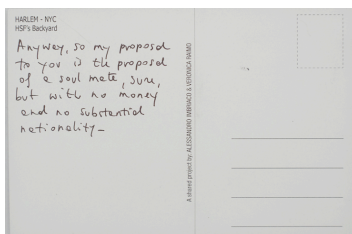 HARLEM - NYC
HSF's Backyard
Anyway, so my proposal
to you is the proposal
of a soul mate, sure,
but with no money
and no substantial
nationality_
A shared project by: ALESSANDRO IMBRIACO & VERONICA RAIMO